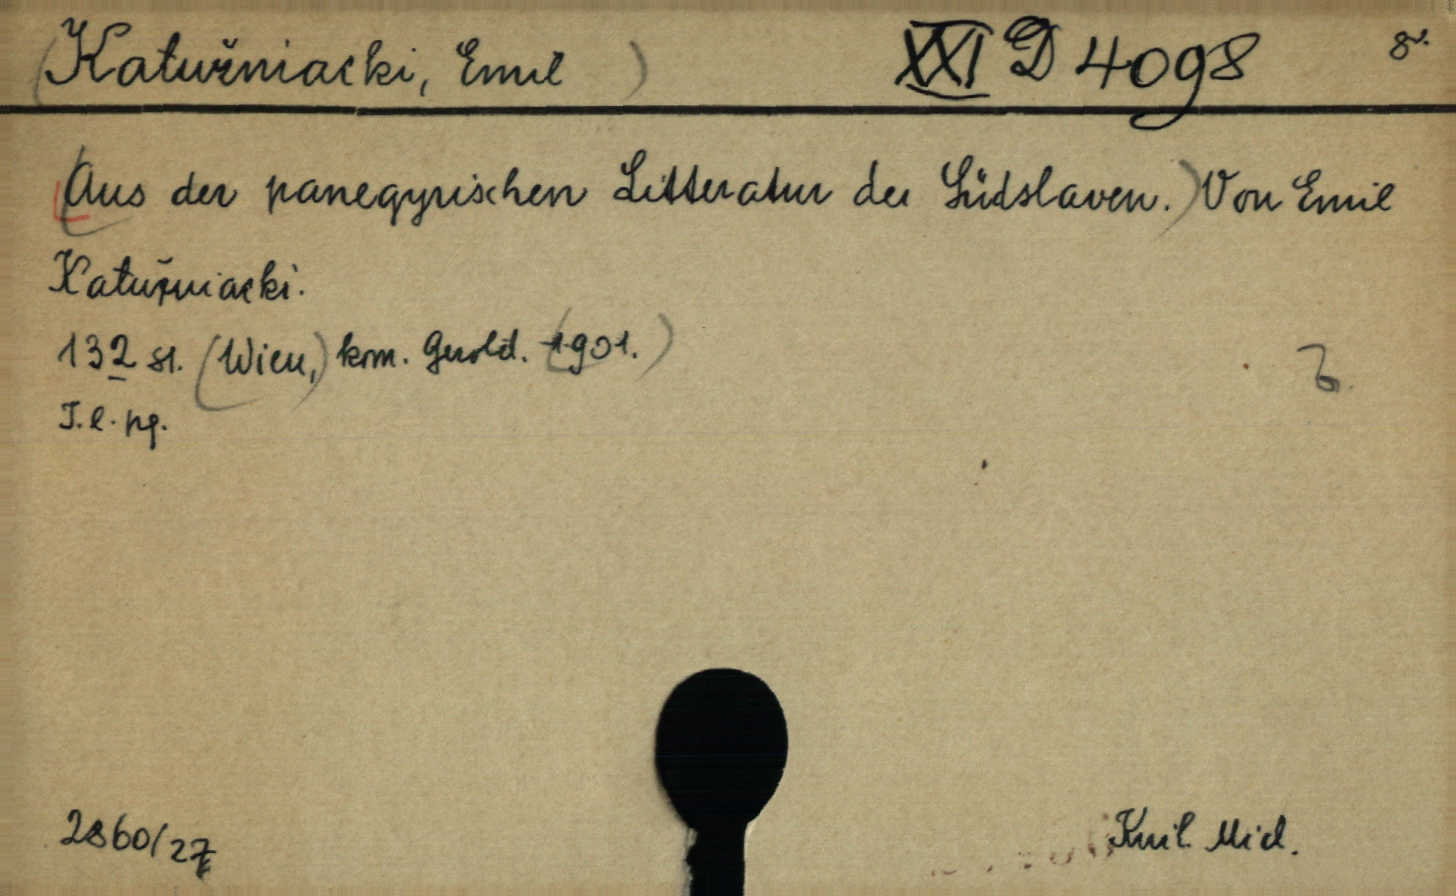 (Katužniacki, Emil) XXI D 4098 8°.
(Aus der panegyrischen Litteratur der Südslaven.) Von Emil
Katužniacki.
132 st. (Wien,) kom. Gerold. (1901.)
T. l. pg.
2860/27
Knil. Mid.